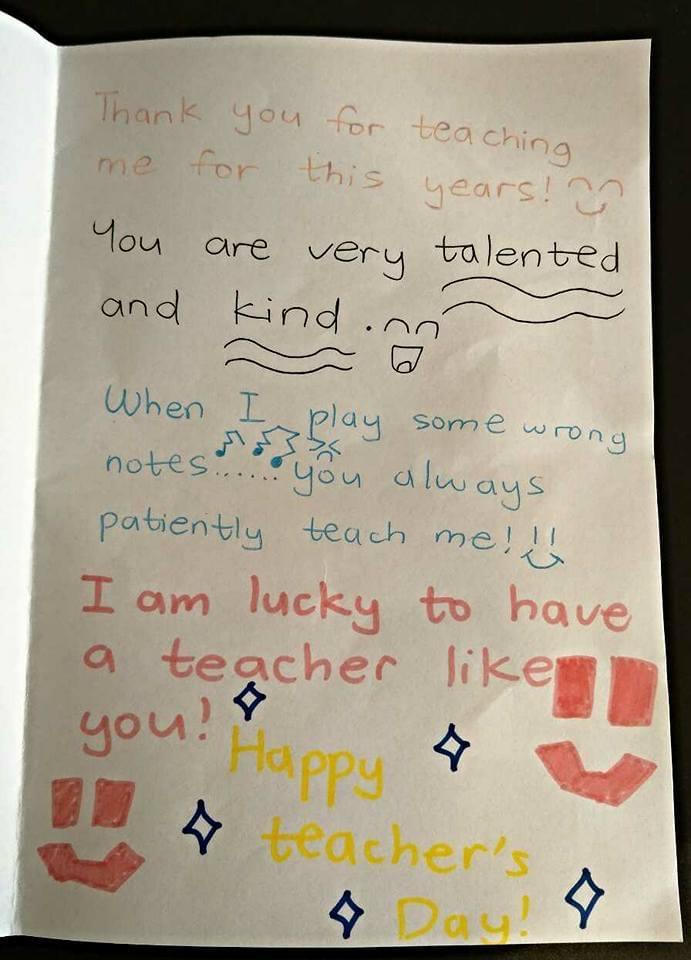 Thank you for teaching
me for this years!
You are very talented
and kind.
When I play some wrong
notes...... you always
patiently teach me!!!
I am lucky to have
a teacher like
you!
Happy
teacher's
Day!